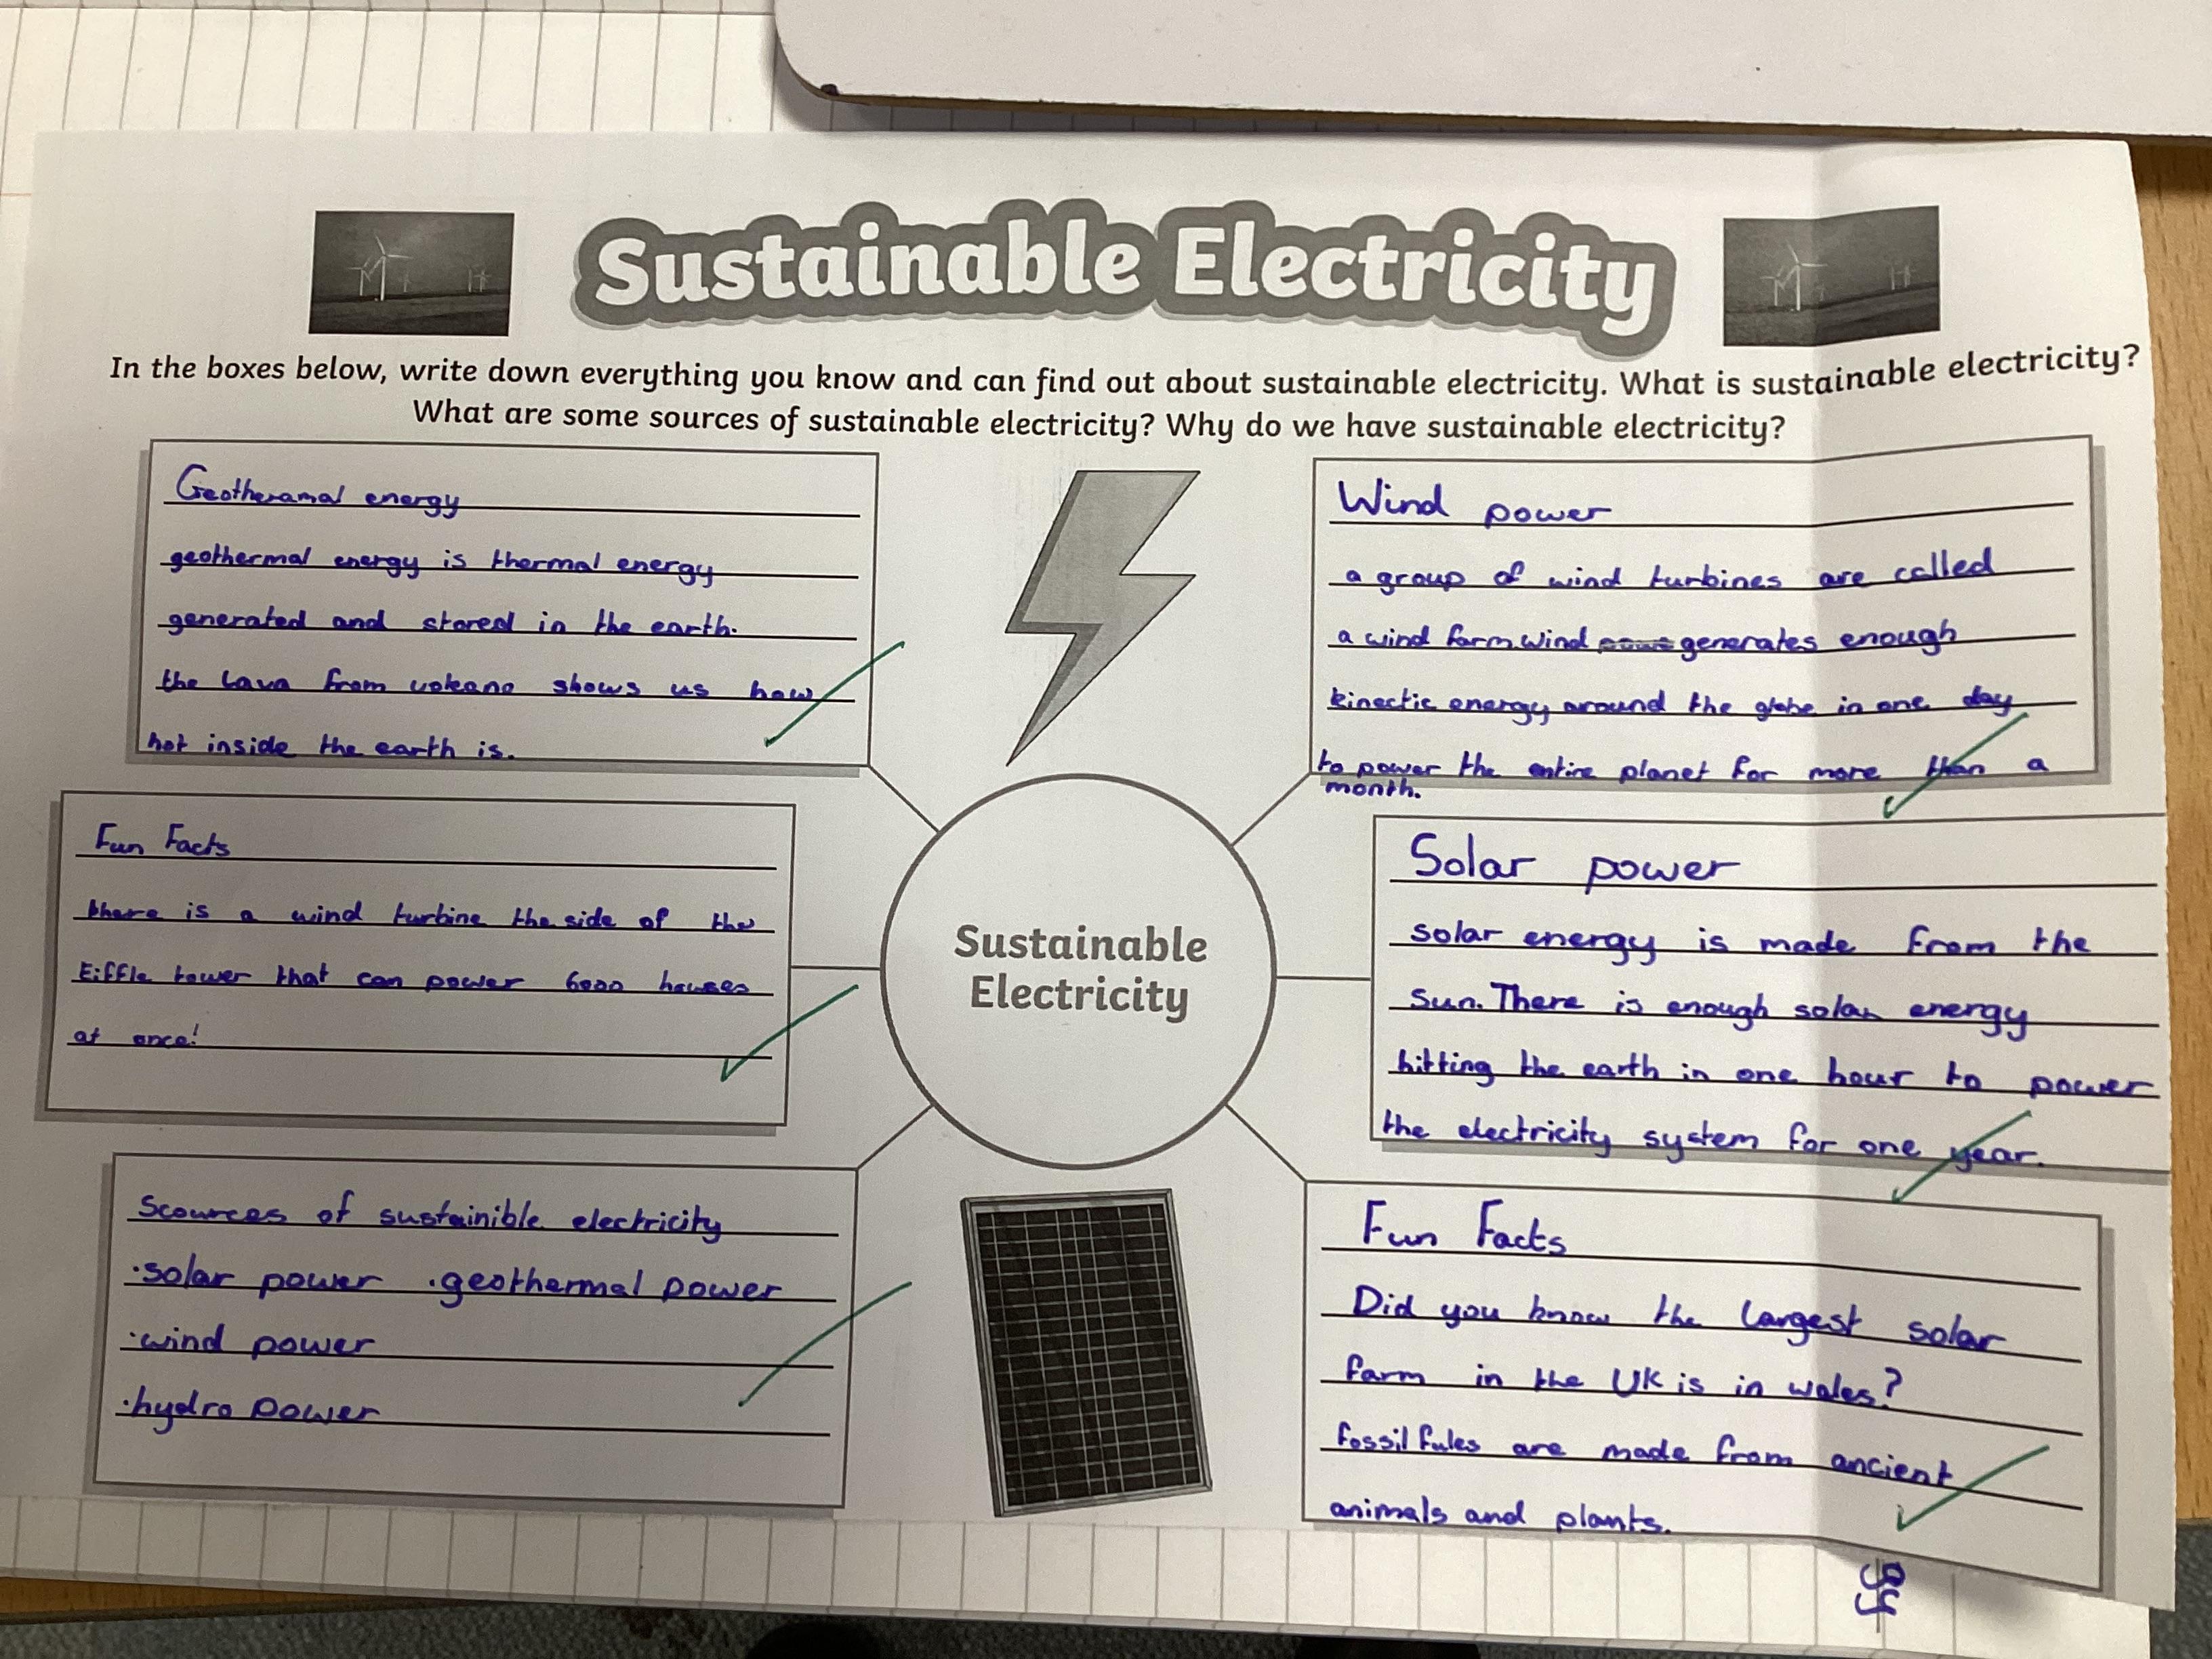 Sustainable Electricity
In the boxes below, write down everything you know and can find out about sustainable electricity. What is sustainable electricity?
What are some sources of sustainable electricity? Why do we have sustainable electricity?
Geotheramal energy
geothermal energy is thermal energy
generated and stored in the earth.
the lava from volcano shows us how
hot inside the earth is.
Wind power
a group of wind turbines are called
a wind farm. wind generates enough
kinectic energy around the globe in one day
to power the entire planet for more than a
month.
Fun Facts
there is a wind turbine the side of the
Eiffle tower that can power 6000 houses
at once!
Sustainable
Electricity
Solar power
solar energy is made from the
sun. There is enough solar energy
hitting the earth in one hour to power
the electricity system for one year.
Scources of sustainible electricity
·solar power ·geothermal power
·wind power
·hydro power
Fun Facts
Did you know the largest solar
farm in the UK is in wales?
fossil fules are made from ancient
animals and plants.